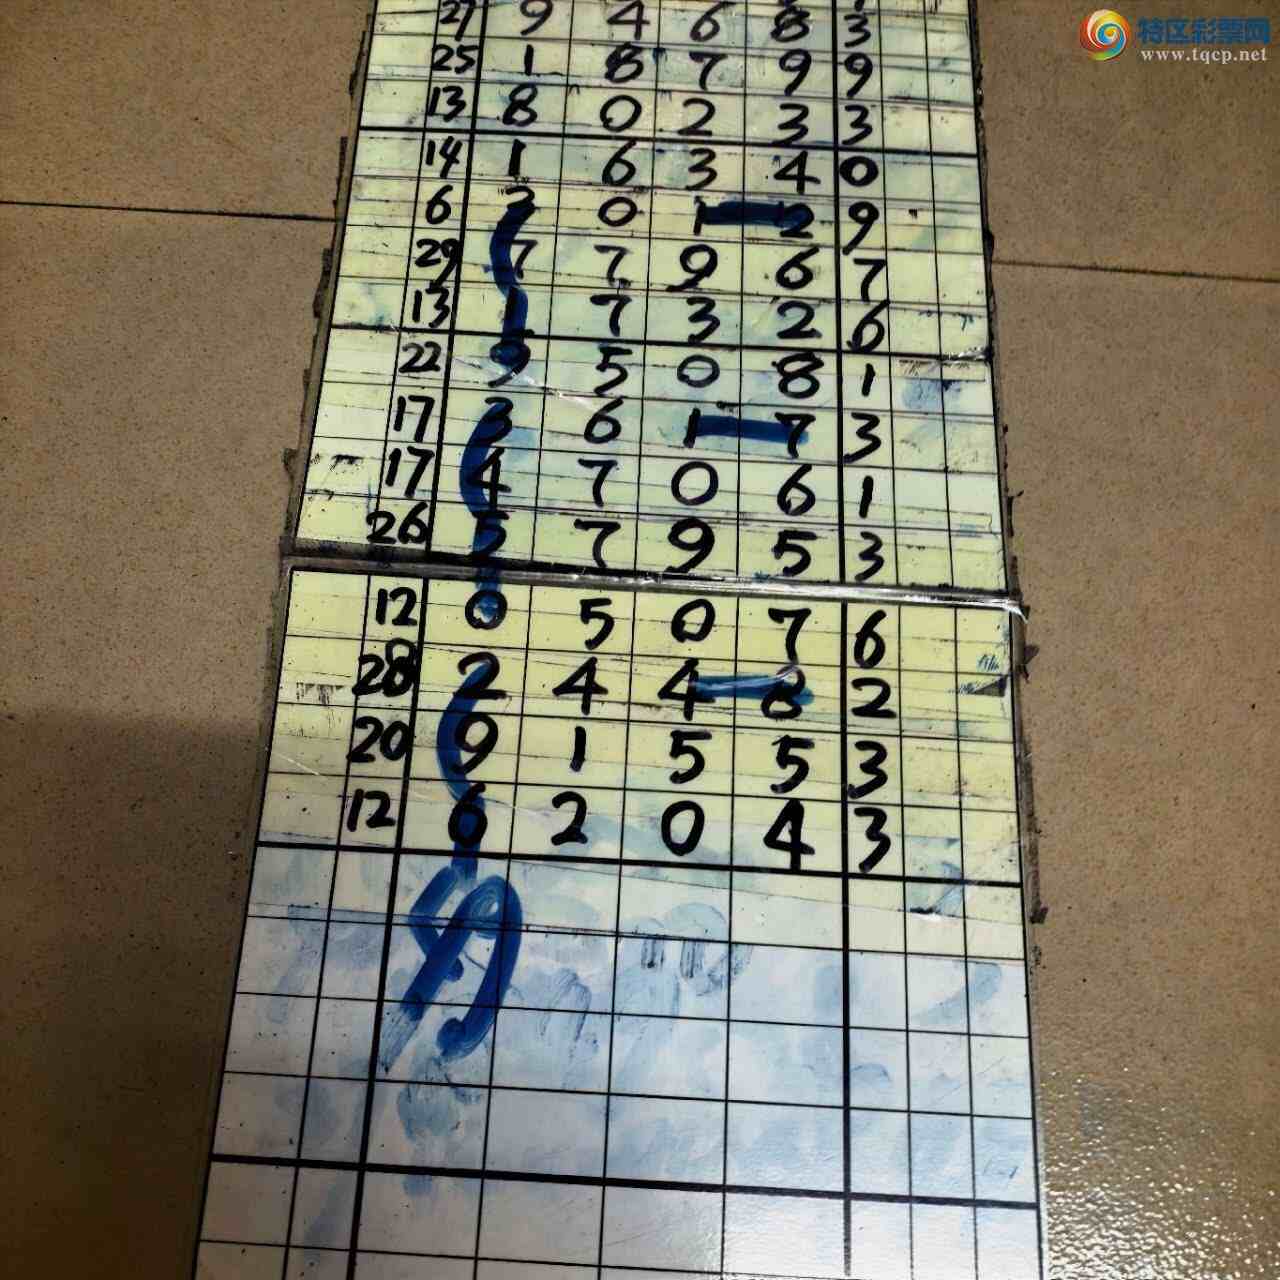 特区彩票网
www.tqcp.net
27 9 4 6 8 3
25 1 8 7 9 9
13 8 0 2 3 3
14 1 6 3 4 0
6 3 0 1 2 9
29 7 7 9 6 7
13 1 7 3 2 6
22 9 5 0 8 1
17 3 6 1 7 3
17 4 7 0 6 1
26 5 7 9 5 3
12 0 5 0 7 6
28 2 4 4 8 2
20 9 1 5 5 3
12 6 2 0 4 3